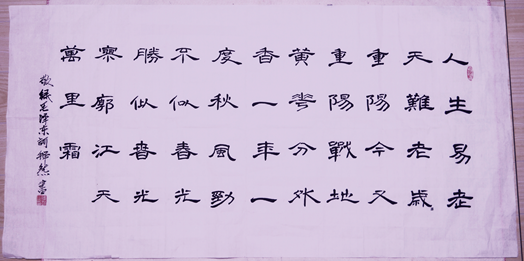 人生易老
天難老歲〻
重陽今又
重陽戰地
黄花分外
香一年一
度秋風勁
不似春光
勝似春光
寥廓江天
萬里霜
敬錄毛泽东詞